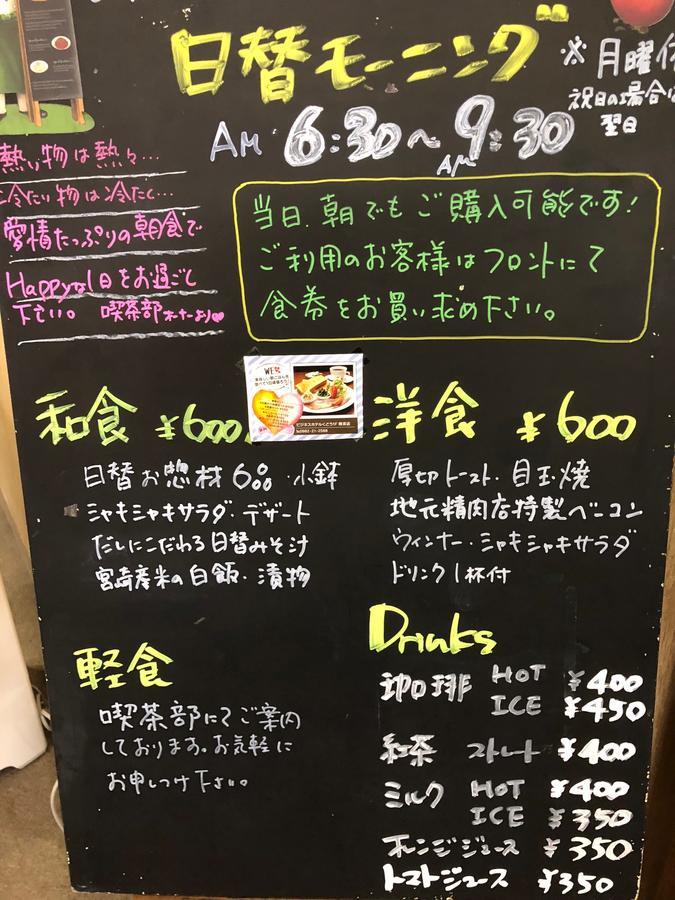 日替モーニング
※月曜休
祝日の場合は
翌日
AM 6:30〜AM 9:30
熱い物は熱々…
冷たい物は冷たく…
愛情たっぷりの朝食で
Happyな1日をお過ごし
下さい。 喫茶部オーナーより♥
当日、朝でもご購入可能です!
ご利用のお客様はフロントにて
食券をお買い求め下さい。
和食 ¥600
日替お惣材 小鉢
シャキシャキサラダ・デザート
だしにこだわる日替みそ汁
宮崎産米の白飯・漬物
洋食 ¥600
厚切トースト・目玉焼
地元精肉店特製ベーコン
ウィンナー・シャキシャキサラダ
ドリンク1杯付
軽食
喫茶部にてご案内
しております。お気軽に
お申しつけ下さい。
Drinks
珈琲 HOT ¥400
ICE ¥450
紅茶 ストレート ¥400
ミルク HOT ¥400
ICE ¥350
オレンジジュース ¥350
トマトジュース ¥350